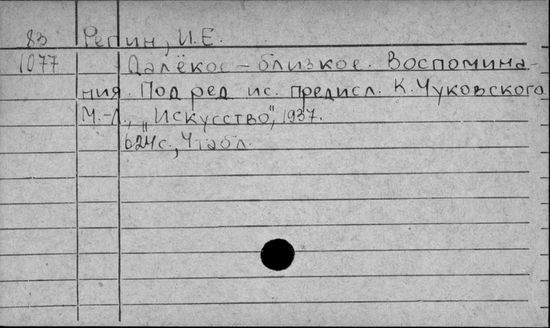 83 Репин, И.Е.
1077 Далёкое – близкое. Воспомина-
ния. Под ред. ис. предисл. К. Чуковского
М.-Л., „Искусство", 1937.
624 с., 4 табл.